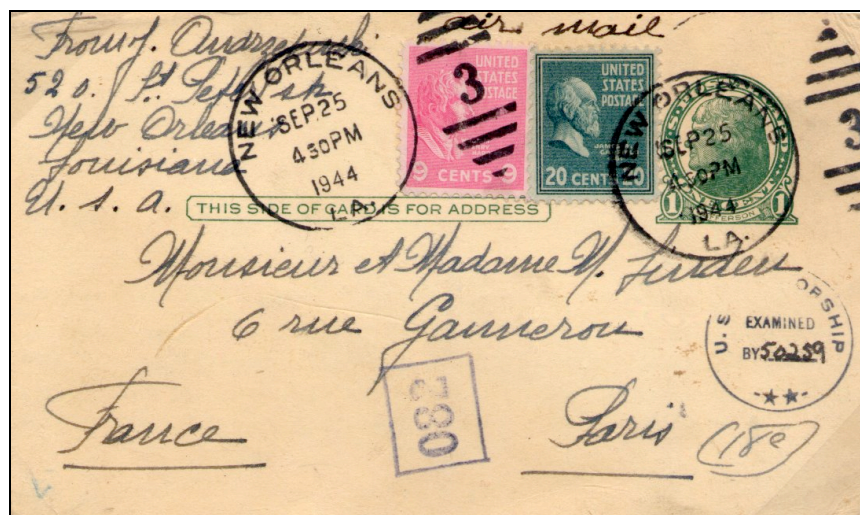 air mail
From J.
520. St Peter str
New Orleans
Louisiana
U. S. A.
NEW ORLEANS
SEP 25
4 30 PM
1944
LA.
UNITED
STATES
POSTAGE
9 CENTS 9
3
UNITED
STATES
POSTAGE
20 CENTS 20
NEW ORLEANS
SEP 25
4 30 PM
1944
LA.
1 JEFFERSON 1
3
THIS SIDE OF CARD IS FOR ADDRESS
Monsieur et Madame M. Linden
6 rue Ganneron
France
Paris (18e)
U.S. ORSHIP
EXAMINED
BY 50259
082